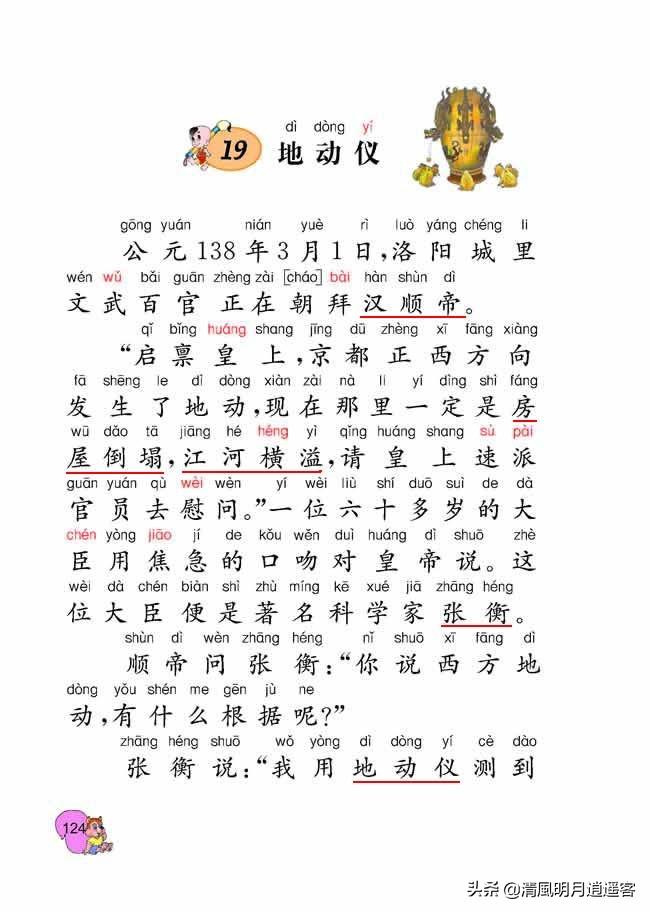 dì dòng yí
19 地动仪
gōng yuán nián yuè rì luò yáng chéng li
公元138年3月1日,洛阳城里
wén wǔ bǎi guān zhèng zài [cháo] bài hàn shùn dì
文武百官正在朝拜汉顺帝。
qǐ bǐng huáng shang jīng dū zhèng xī fāng xiàng
“启禀皇上,京都正西方向
fā shēng le dì dòng xiàn zài nà li yí dìng shì fáng
发生了地动,现在那里一定是房
wū dǎo tā jiāng hé héng yì qǐng huáng shang sù pài
屋倒塌,江河横溢,请皇上速派
guān yuán qù wèi wèn yí wèi liù shí duō suì de dà
官员去慰问。”一位六十多岁的大
chén yòng jiāo jí de kǒu wěn duì huáng dì shuō zhè
臣用焦急的口吻对皇帝说。这
wèi dà chén biàn shì zhù míng kē xué jiā zhāng héng
位大臣便是著名科学家张衡。
shùn dì wèn zhāng héng nǐ shuō xī fāng dì
顺帝问张衡:“你说西方地
dòng yǒu shén me gēn jù ne
动,有什么根据呢?”
zhāng héng shuō wǒ yòng dì dòng yí cè dào
张衡说:“我用地动仪测到
124
头条 @清風明月逍遥客